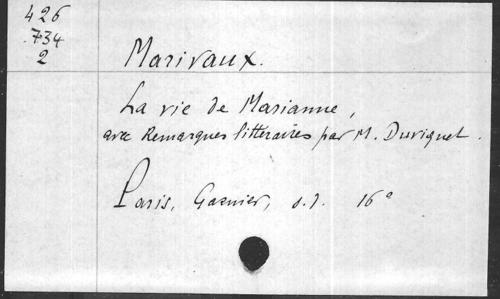 426
734
2
Marivaux.
La vie de Marianne,
avec Remarques littéraires par M. Duviquet.
Paris, Garnier, s.d. 16°